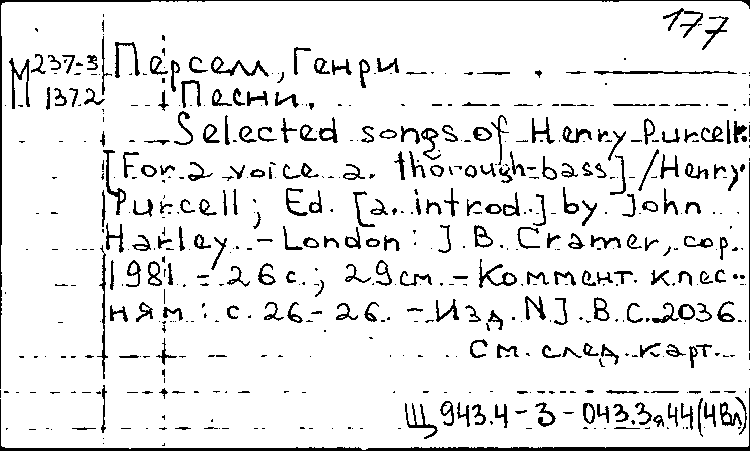 177
М 237-3 Перселл, Генри
П 1372 Песни.
Selected songs of Henry Purcell:
[For a voice a. thorough-bass] / Henry
Purcell; Ed. [a. introd.] by John
Harley. - London: J. B. Cramer, cop.
1981. - 26 с.; 29 см. - Коммент. к пес-
ням: с. 26-26. - Изд. N J. B. C. 2036
См. след. карт.
Щ 943.4 - 3 - 043.3я44(4Вл)